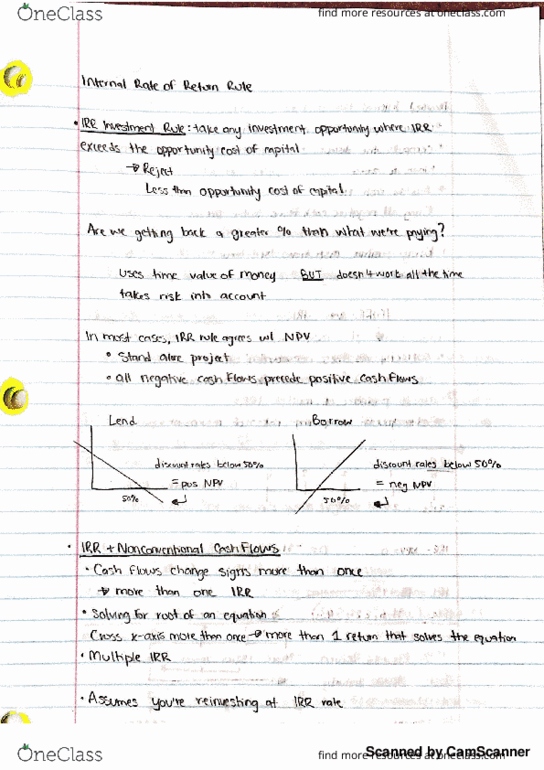 OneClass
find more resources at oneclass.com
Internal Rate of Return Rule
• IRR Investment Rule: take any investment opportunity where IRR
exceeds the opportunity cost of capital
→ Reject
Less than opportunity cost of capital
Are we getting back a greater % than what we're paying?
uses time value of money BUT doesn't work all the time
takes risk into account
In most cases, IRR rule agrees w/ NPV
• Stand alone project
• all negative cash flows precede positive cash flows
Lend Borrow
discount rates below 50% discount rates below 50%
= pos NPV = neg NPV
50% 50%
• IRR + Nonconventional Cash Flows
• Cash flows change signs more than once
→ more than one IRR
• Solving for root of an equation
Cross x-axis more than once → more than 1 return that solves the equation
• Multiple IRR
• Assumes you're reinvesting at IRR rate
OneClass
find more resources at oneclass.com
Scanned by CamScanner